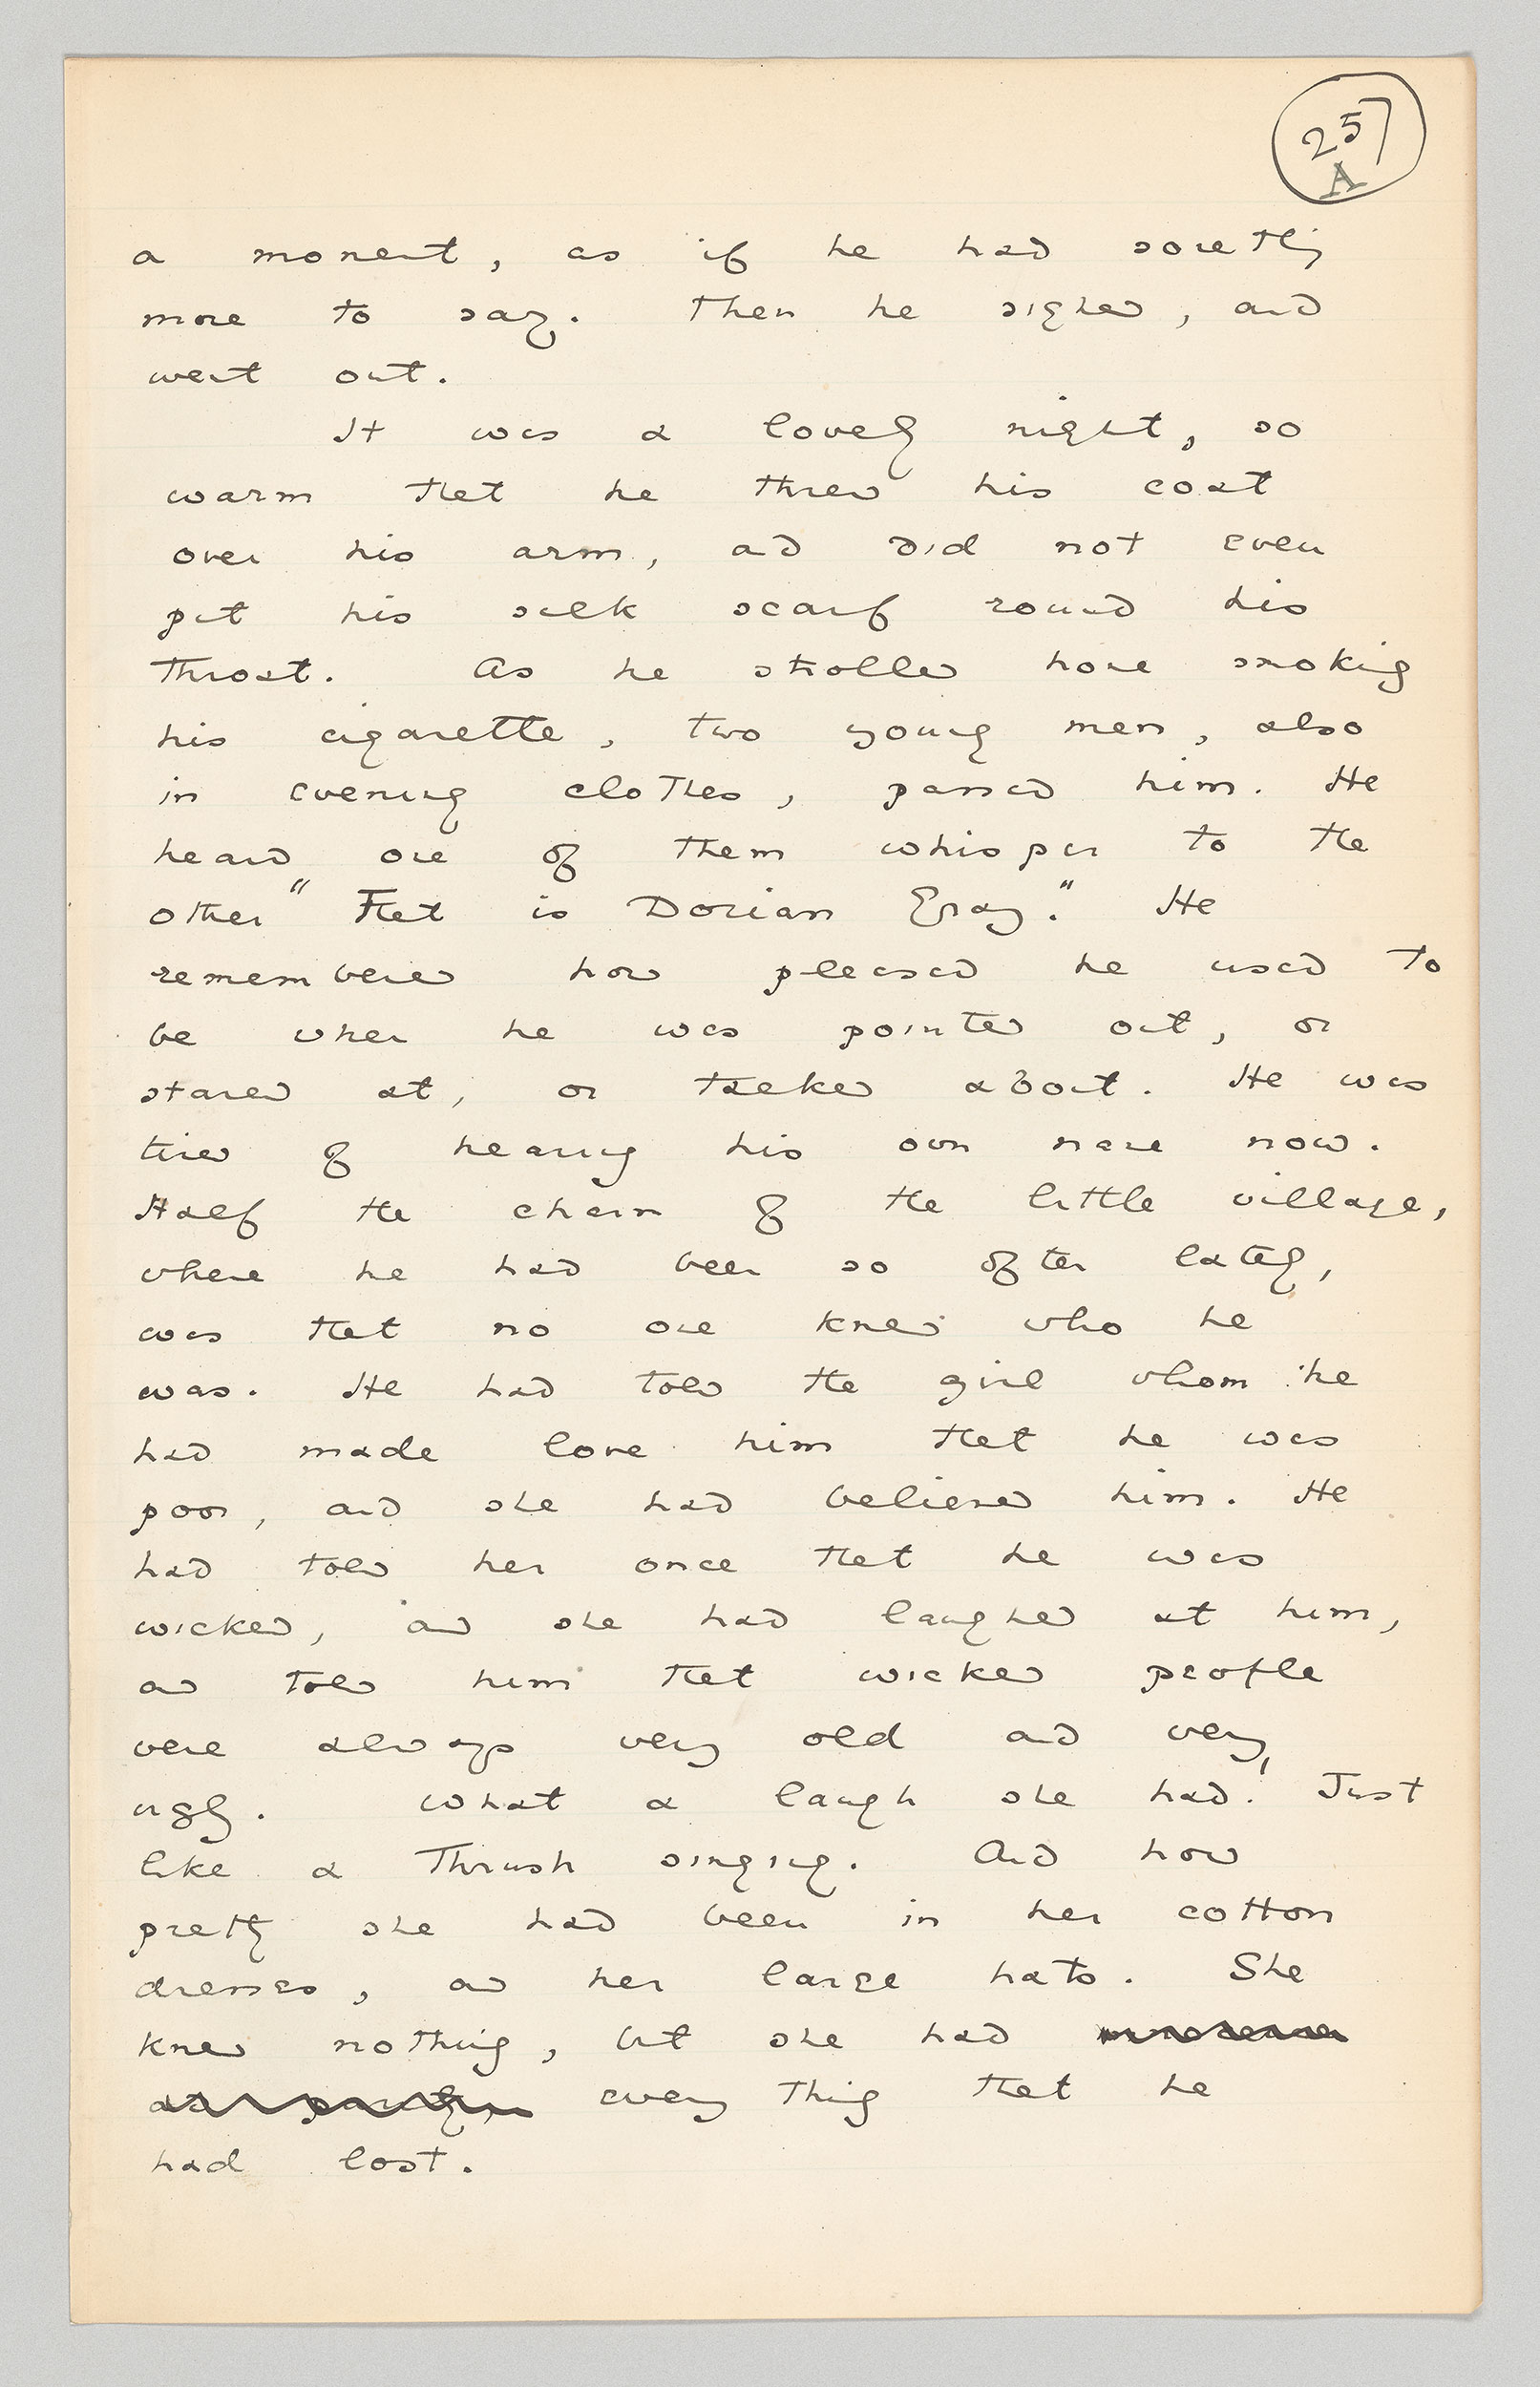 257
A
a moment, as if he had something
more to say. Then he sighed, and
went out.
It was a lovely night, so
warm that he threw his coat
over his arm, and did not even
put his silk scarf round his
throat. As he strolled home smoking
his cigarette, two young men, also
in evening clothes, passed him. He
heard one of them whisper to the
other "That is Dorian Gray." He
remembered how pleased he used to
be when he was pointed out, or
stared at, or talked about. He was
tired of hearing his own name now.
Half the charm of the little village,
where he had been so often lately,
was that no one knew who he
was. He had told the girl whom he
had made love him that he was
poor, and she had believed him. He
had told her once that he was
wicked, and she had laughed at him,
and told him that wicked people
were always very old and very
ugly. What a laugh she had! Just
like a thrush singing. And how
pretty she had been in her cotton
dresses, and her large hats. She
knew nothing, but she had
everything that he
had lost.